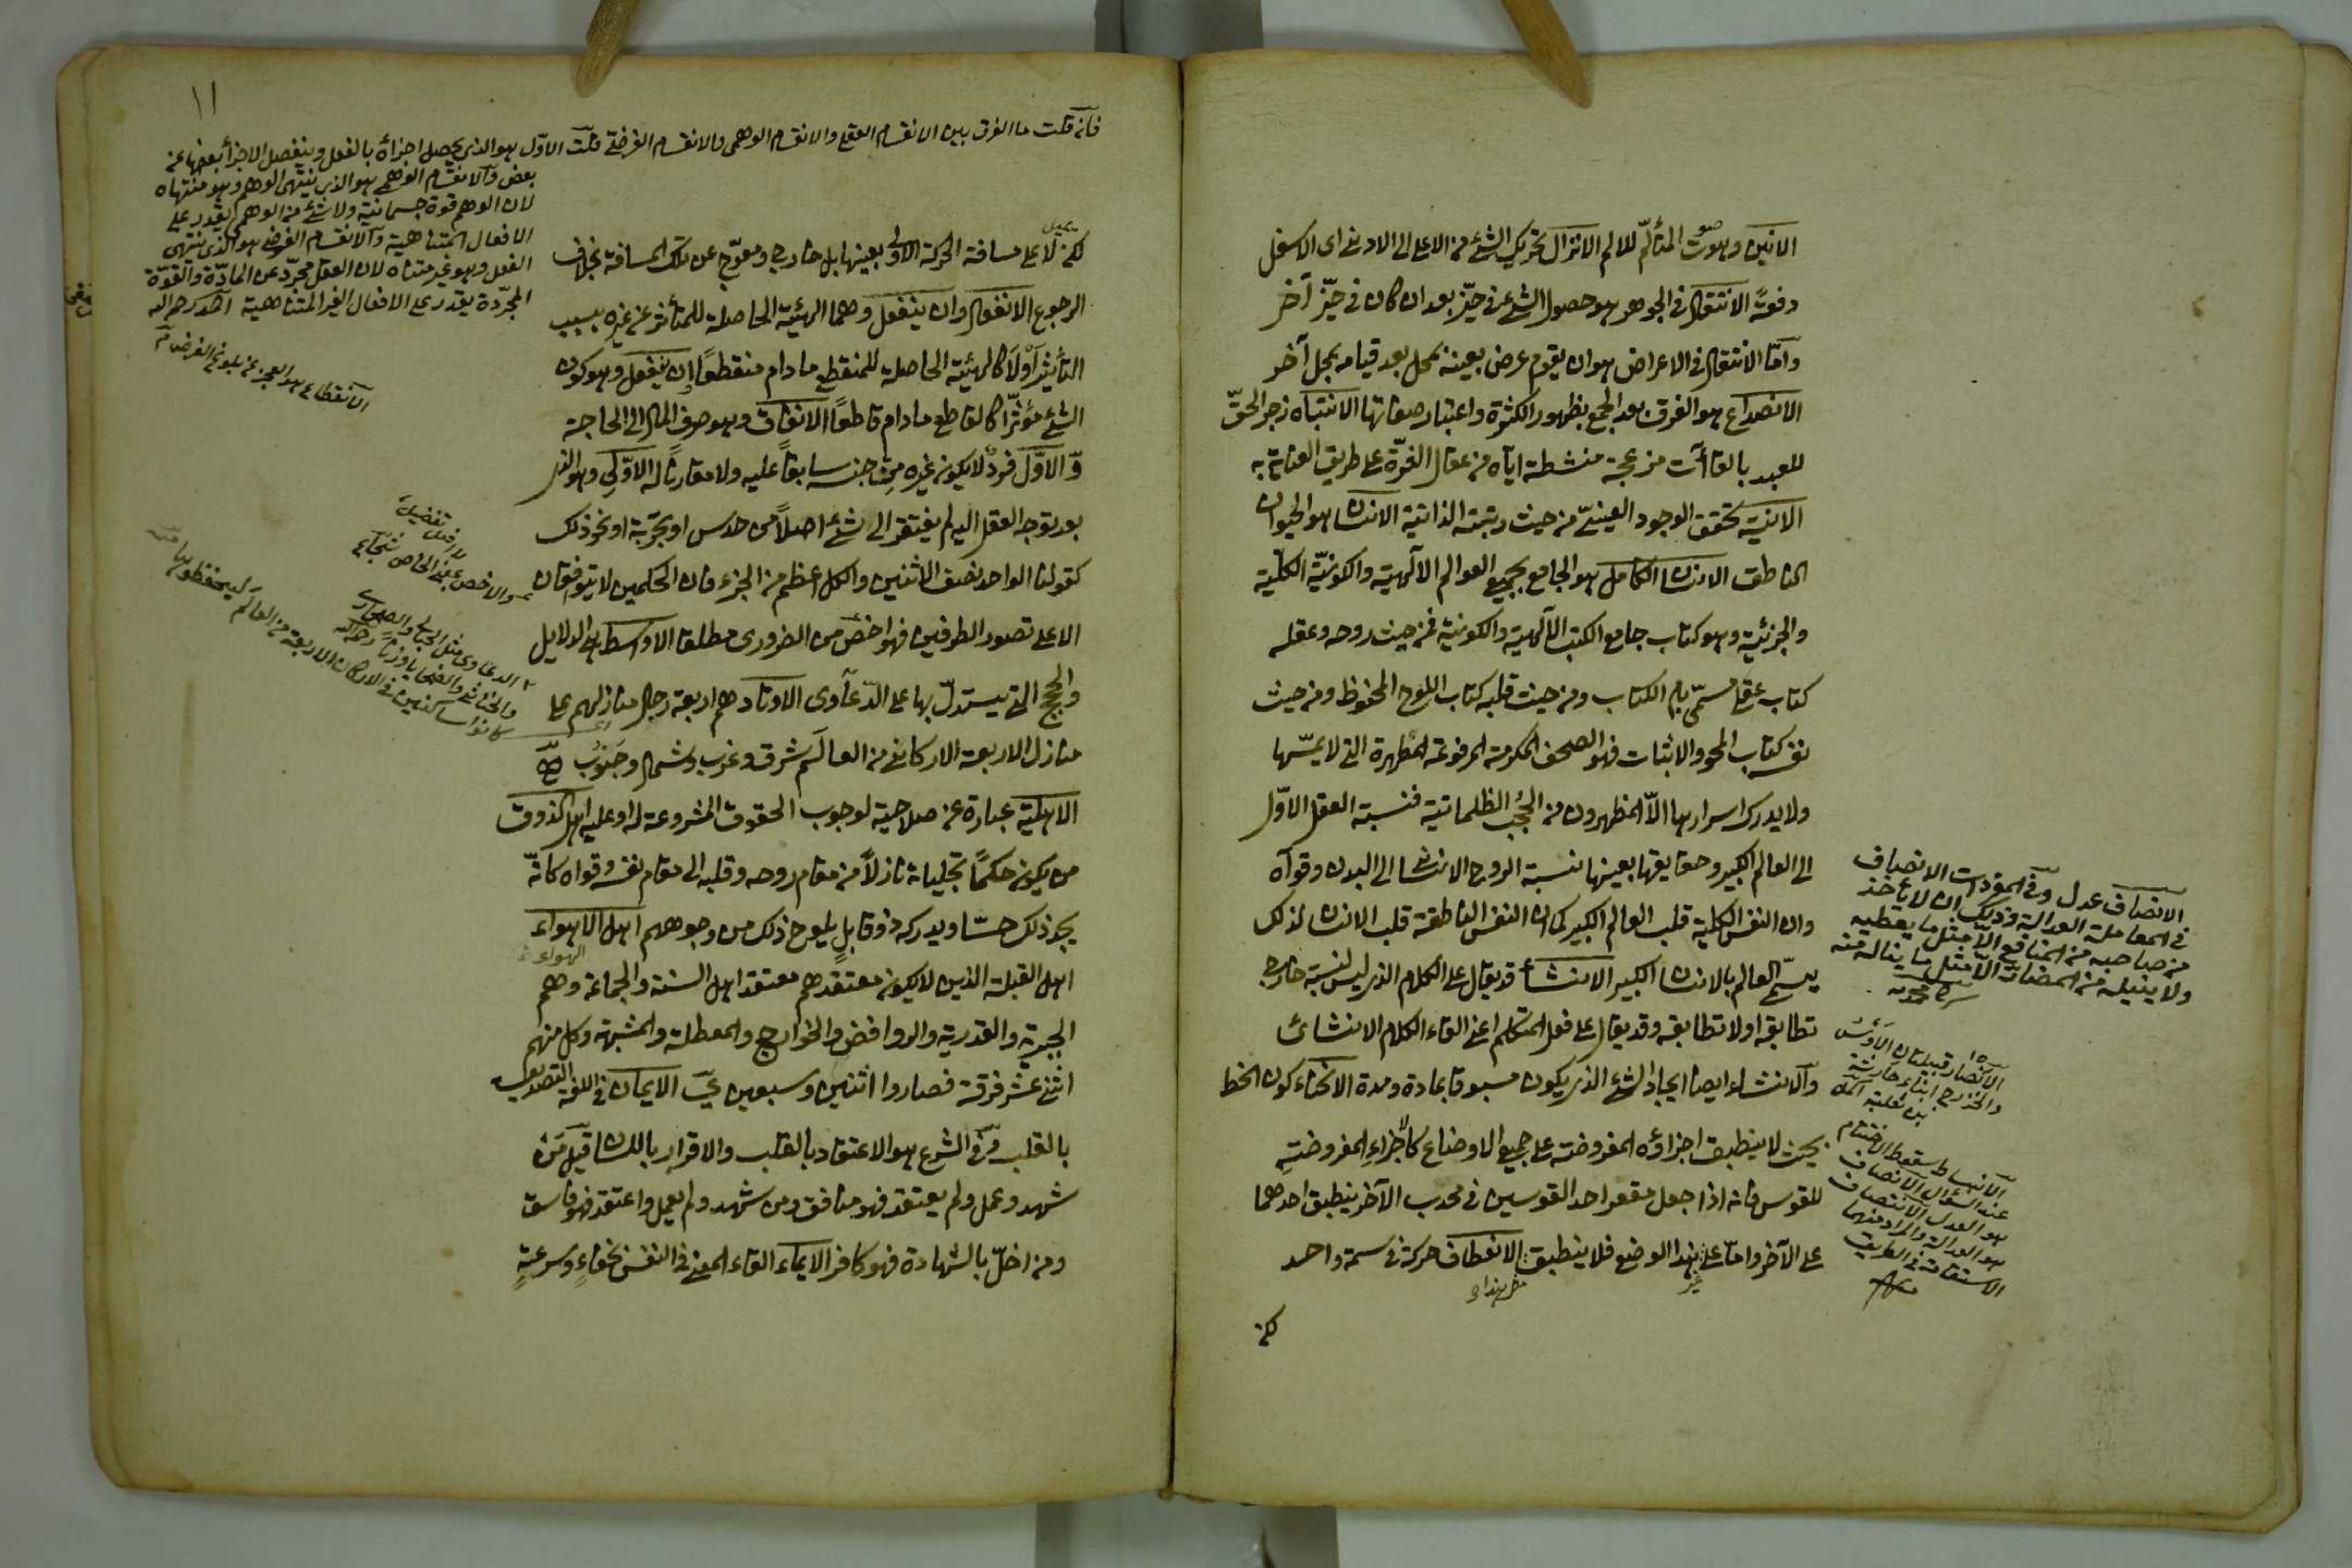 الانين وهو صوت المتألم للالم الانزال تحريك الشئ من الاعلى الى الادنى اى الاسفل
دفعةً الانتقال فى الجوهر هو حصول الشئ فى حيّز بعد ان كان فى حيّز آخر
وآمّا الانتقال فى الاعراض هو ان يقوم عرض بعينه بمحل بعد قيامه بمحل آخر
الانصداع هو الفرق بعد الجمع بظهور الكثرة واعتبار صفاتها الانتباه زجر الحقّ
للعبد بالقاآت مزعجة منشطة اياه من عقال الغرّة على طريق العناية به
الانيّة تحقق الوجود العينىّ من حيث رتبته الذاتية الانسان هو الحيوان
الناطق الانسان الكامل هو الجامع بجميع العوالم الآلهيّة والكونيّة الكلّية
والجزئية وهو كتاب جامع الكتب الآلهية والكونية فمن حيث روحه وعقله
كتاب عقلى مسمّى بام الكتاب ومن حيث قلبه كتاب اللوح المحفوظ ومن حيث
نفسه كتاب المحو والاثبات فهو الصحف المكرمة المرفوعة المطهرة التى لا يمسّها
ولا يدرك اسرارها الاّ المطهرون من الحُجُب الظلمانية فنسبة العقل الاوّل
الى العالم الكبير وحقايقها بعينها نسبة الروح الانسانى الى البدن وقوآه
وان النفس الكلية قلب العالم الكبير كما ان النفس الناطقة قلب الانسان لذلك
يسمّى العالم بالانسان الكبير الانشاء قد يقال على الكلام الذى ليس لنسبته خارج
تطابقه اولا تطابقه وقد يقال على فعل المتكلم اعنى القاء الكلام الانشائى
وآلانشاء ايضا ايجاد الشئ الذى يكون مسبوقا بمادة ومدة الانحناء كون الخط
بحيث لا ينطبق اجزاؤه المفروضة على جميع الاوضاع كالاجزاء المفروضة
للقوس فانه اذا جعل مقعر احد القوسين فى محدب الآخر ينطبق احدهما
على الآخر وامّا على غير هذا الوضع فلا ينطبق الانعطاف حركة فى سمة واحد
لكن
الآنصاف عدل وفى المفردات الانصاف
فى المعاملة العدالة وذلك ان لا يأخذ
من صاحبه من المنافع الاّ مثل ما يعطيه
ولا ينيله من المضارّ الاّ مثل ما يناله منه
الآنصار قبيلتان الآوس
والخزرج ابناء حارثة
بن ثعلبة
الآنبساط سقوط الاحتشام
عند السؤال الآنصاف
هو العدل الآنتصاف
هو العدالة والمراد منهما
الاستقامة فى الطريق
١١
فانْ قلت ما الفرق بين الانقسام العقلى والانقسام الوهمى والانقسام الفرضى قلت الاوّل هو الذى يحصل اجزاؤه بالفعل وينفصل الاجزأ بعضها عن
بعض وآلانقسام الوهمى هو الذى ينتهى الوهم وهو منتهاه
لان الوهم قوة جسمانية ولا شئ من الوهمى يقدر على
الافعال المتناهية وآلانقسام الفرضى هو الذى ينتهى
العقل وهو غير متناه لان العقل مجرّد عن المادّة والقوّة
المجرّدة يقدر على الافعال الغير المتناهية
الآنقطاع هو العجز عن بلوغ الغرض
لكن لا على مسافة الحركة الاولى بعينها بل خارج ومعوّج عن تلك المسافة بخلاف
الرجوع الانفعال وان ينفعل وهما الهيئة الحاصلة للمتأثر عن غيره بسبب
التأثير آوّلاً كالهيئة الحاصلة للمنقطع ما دام منقطعًا إن يفعل وهو كون
الشئ مؤثّرا كالقاطع ما دام قاطعًا الانفاق وهو صرف المال الى الحاجة
الاوّل فردٌ لا يكون غيره من جنسه سابقًا عليه ولا مقارنًا له الاوّلى وهو الذى
بعد توجه العقل اليه لم يفتقر الى شئ اصلاً من حدس او تجربة او نحو ذلك
كقولنا الواحد نصف الاثنين والكل اعظم من الجزء فان الحكمين لا يتوقفان
الا على تصور الطرفين فهو اخصّ من الضرورى مطلقا الاوسط هو الدلايل
والحجج التى يستدلّ بها على الدّعآوى الاوتاد هم اربعة رجال منازلهم على
منازل الاربعة الاركان من العالَم شرق وغرب وشمال وجَنُوبْ
الاهليّة عبارة عن صلاحية لوجوب الحقوق المشروعة له او عليه اهل الذوق
من يكون حكم تجلياته نازلاً من مقام روحه وقلبه الى مقام نفسه وقواه كانّه
يجد ذلك حسّا ويدركه ذوقا بل يلوح ذلك من وجوههم اهل الاهواء
اهل القبلة الذين لا يكون معتقدهم معتقد اهل السنة والجماعة وهم
الجبرية والقدرية والروافض والخوارج والمعطلة والمشبهة وكل منهم
اثنى عشر فرقة فصاروا اثنين وسبعين الايمان فى اللغة التصديق
بالقلب وفى الشرع هو الاعتقاد بالقلب والاقرار باللسان قيل مَن
شهد وعمل ولم يعتقد فهو منافق ومن شهد ولم يعمل واعتقد فهو فاسق
ومن اخلّ بالشهادة فهو كافر الايماء القاء المعنى فى النفس بخفاءٍ وسرعةٍ